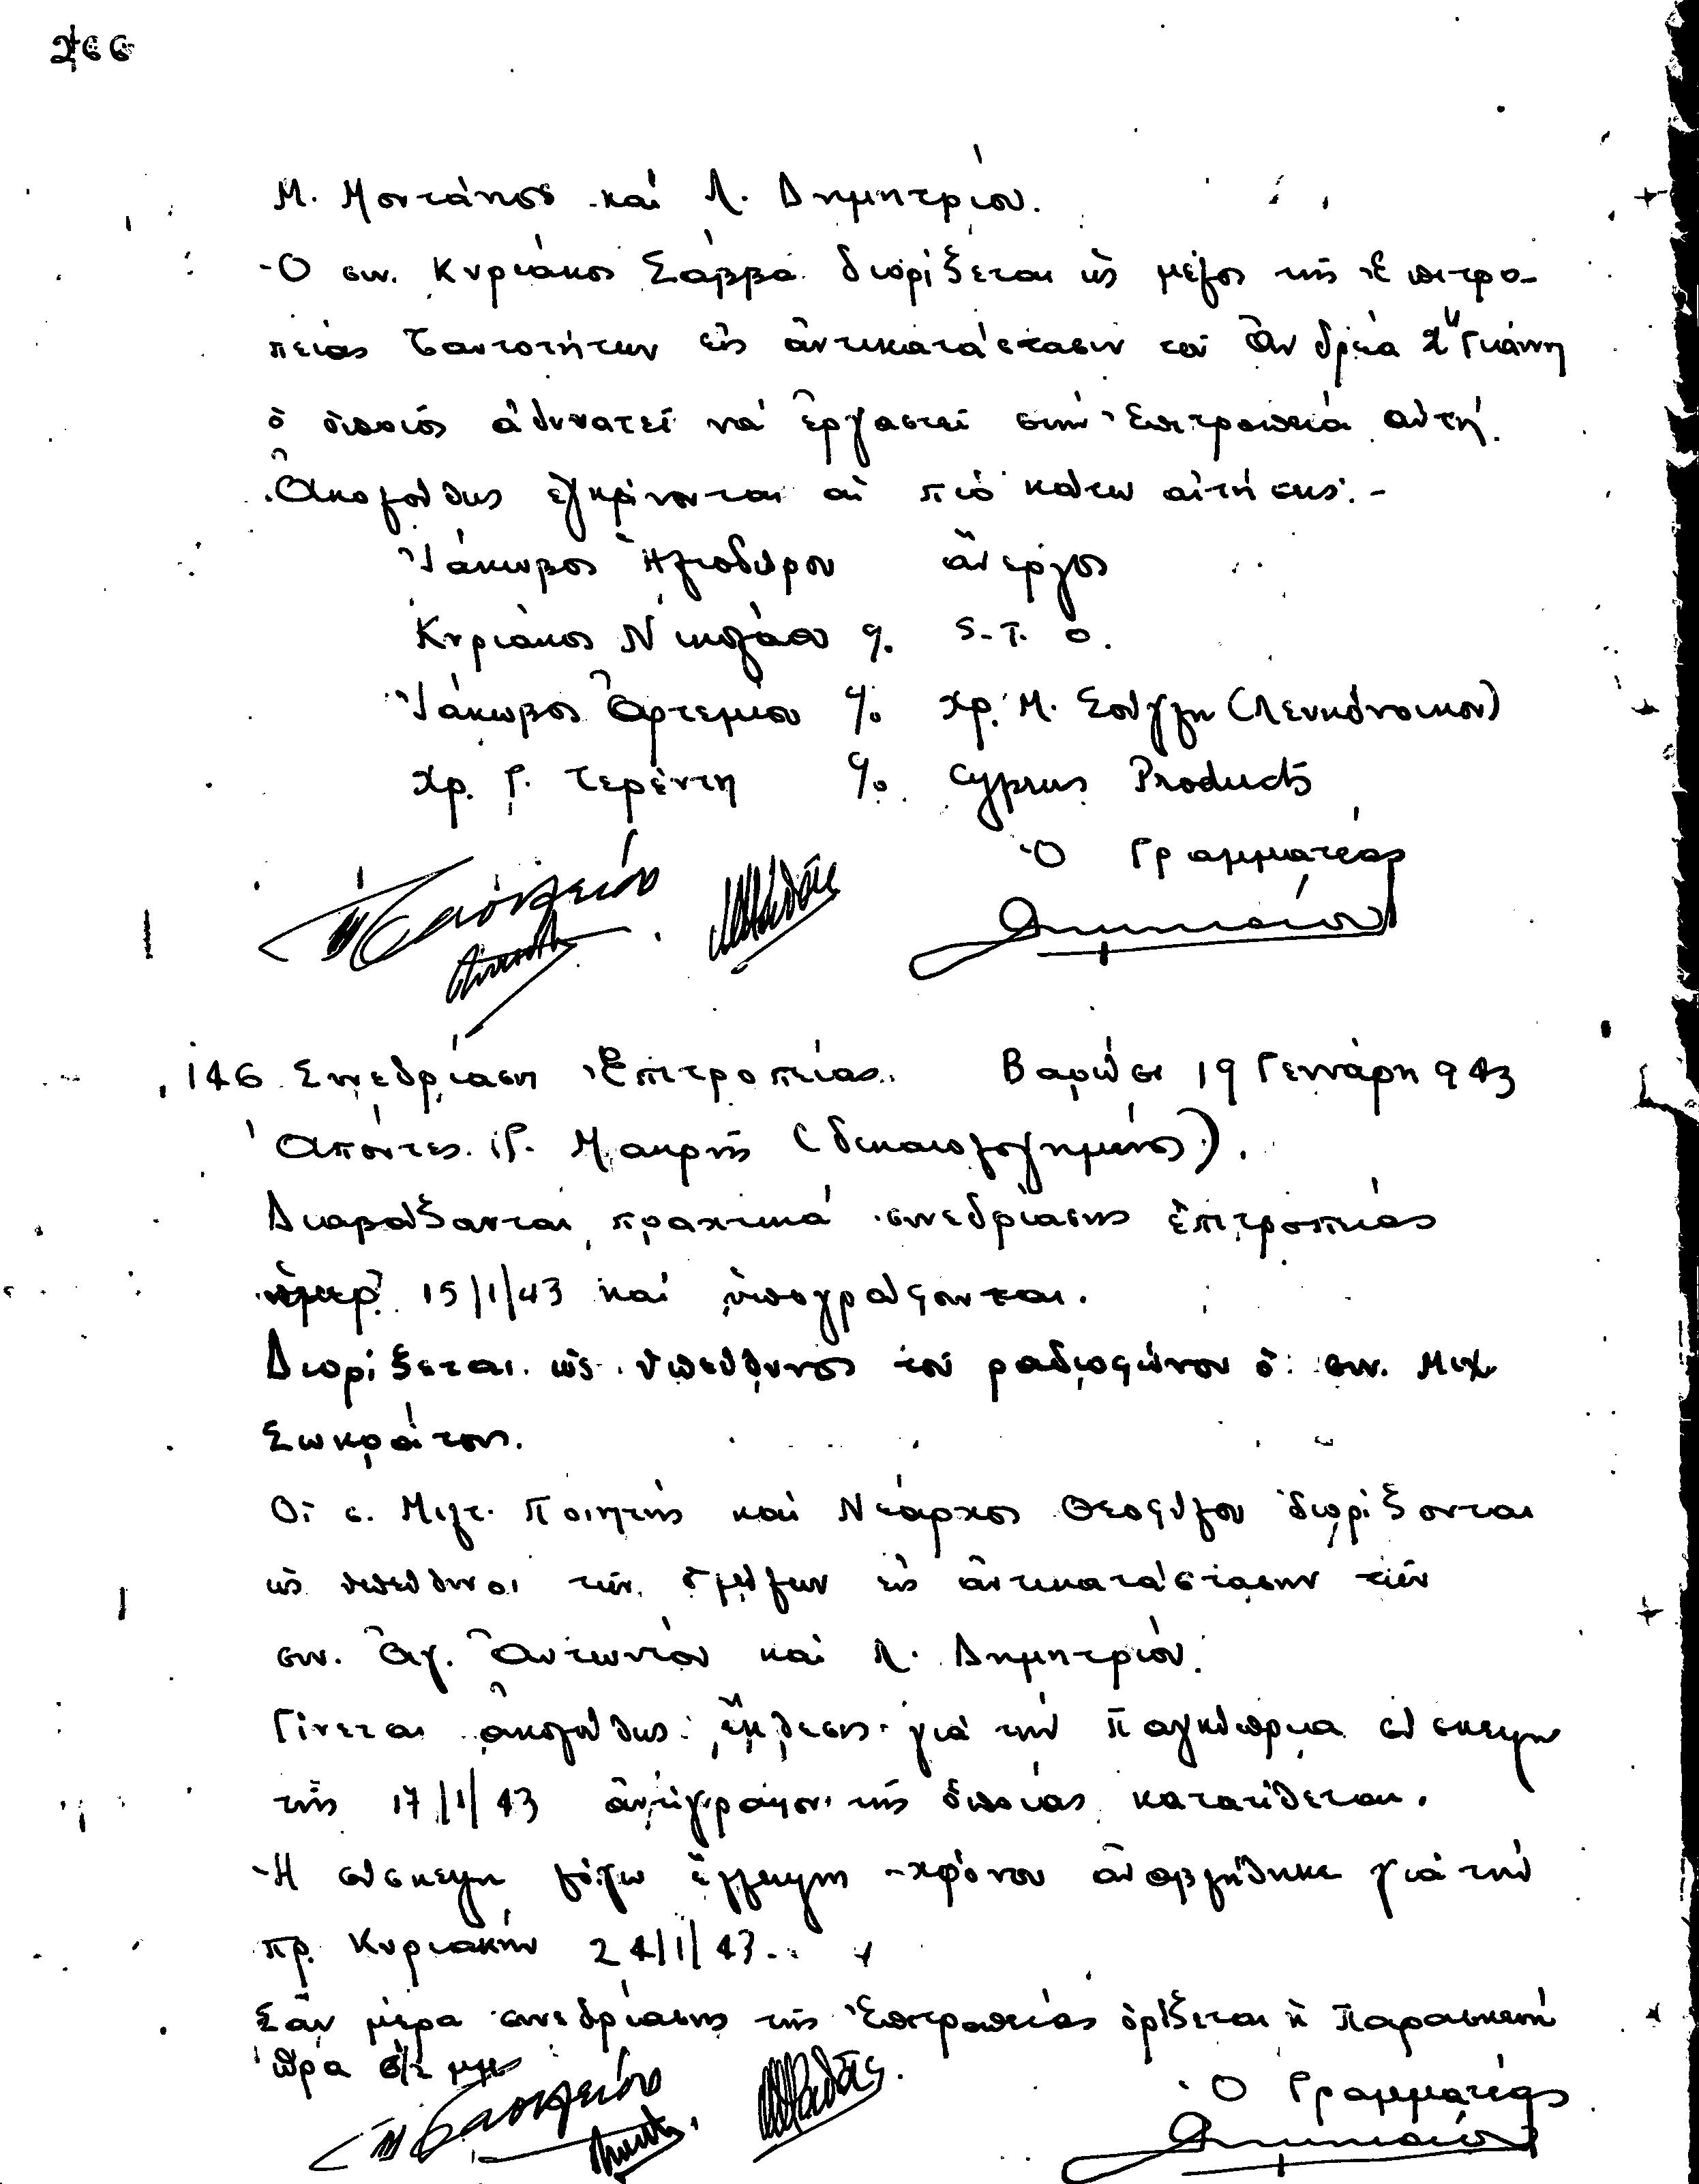 266
Μ. Μοντάνος καί Λ. Δημητρίου.
-Ὁ συν. Κυριάκος Σάββα διορίζεται ὡς μέλος τῆς Ἐπιτρο-
πείας Ταυτοτήτων εἰς ἀντικατάστασιν τοῦ Ἀνδρέα Χ" Γιάννη
ὁ ὁποῖος ἀδυνατεῖ νά ἐργαστεῖ στήν Ἐπιτροπεία αὐτή.
Ἀκολούθως ἐγκρίνονται αἱ πιό κάτω αἰτήσεις:-
Ἰάκωβος Ἡλιοδώρου ἄνεργος
Κυριάκος Νικολάου % S.T. O.
Ἰάκωβος Ἀρτεμίου % Χρ. Μ. Σούγλη (Λευκόνοικον)
Χρ. Γ. Τερέντη % Cyprus Products
Ὁ Γραμματέας
146 Συνεδρίαση Ἐπιτροπείας. Βαρώσι 19 Γεννάρη 943
Ἀπόντες. Γ. Μακρής (δικαιολογημένος).
Διαβάζονται πραχτικά συνεδρίασης ἐπιτροπείας
ἡμερ. 15/1/43 καί ὑπογράφονται.
Διορίζεται ὡς ὑπεύθυνος τοῦ ραδιοφώνου ὁ συν. Μιχ.
Σωκράτους.
Οἱ σ. Μιλτ. Ποιητής καί Νέαρχος Θεοφύλου διορίζονται
ὡς ὑπεύθυνοι τῶν εἰς ἀντικατάστασην τῶν
συν. Ἀγ. Ἀντωνίου καί Λ. Δημητρίου.
Γίνεται ἀκολούθως ἔκθεσης γιά τήν Παγκύπρια σύσκεψη
τῆς 17/1/43 ἀντίγραφον τῆς ὁποίας κατατίθεται.
-Ἡ σύσκεψη λόγω ἔλλειψης χρόνου ἀναβλήθηκε γιά τήν
πρ. Κυριακήν 24/1/43.
Σάν μέρα συνεδρίασης τῆς Ἐπιτροπείας ὁρίζεται ἡ Παρασκευή
ὥρα μμ
Ὁ Γραμματέας